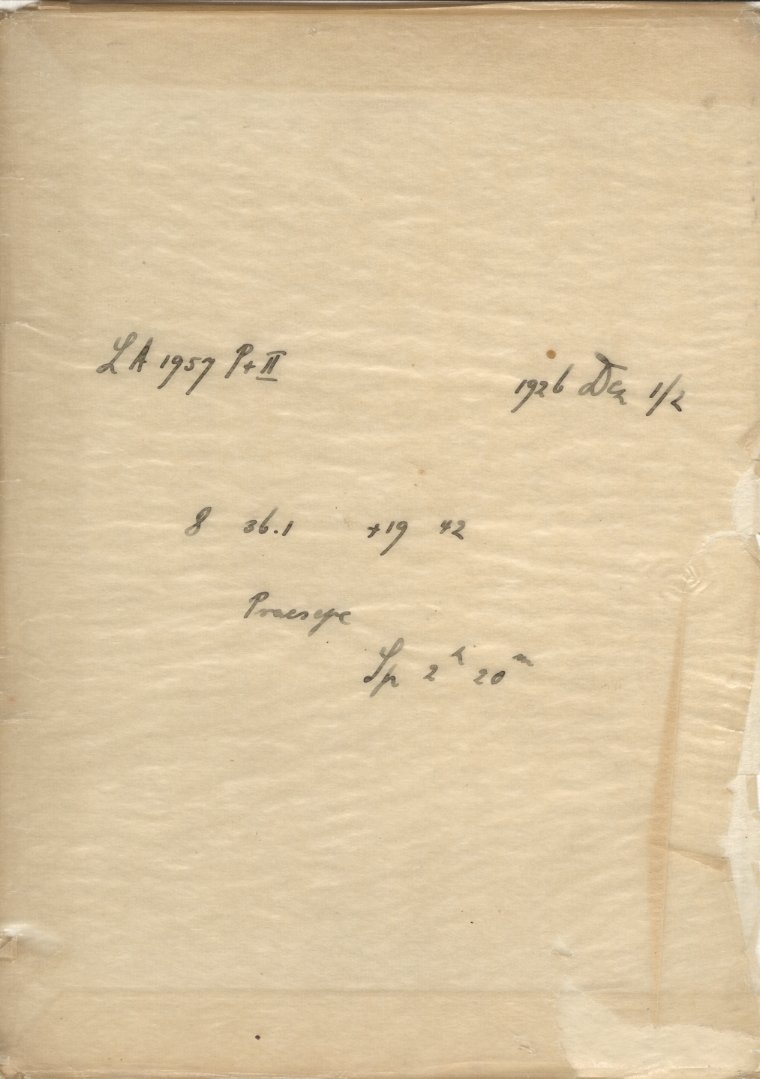 LA 1957 Pt II 1926 Dez 1/2
8 36.1 +19 42
Praesepe
Sp 2h 20m